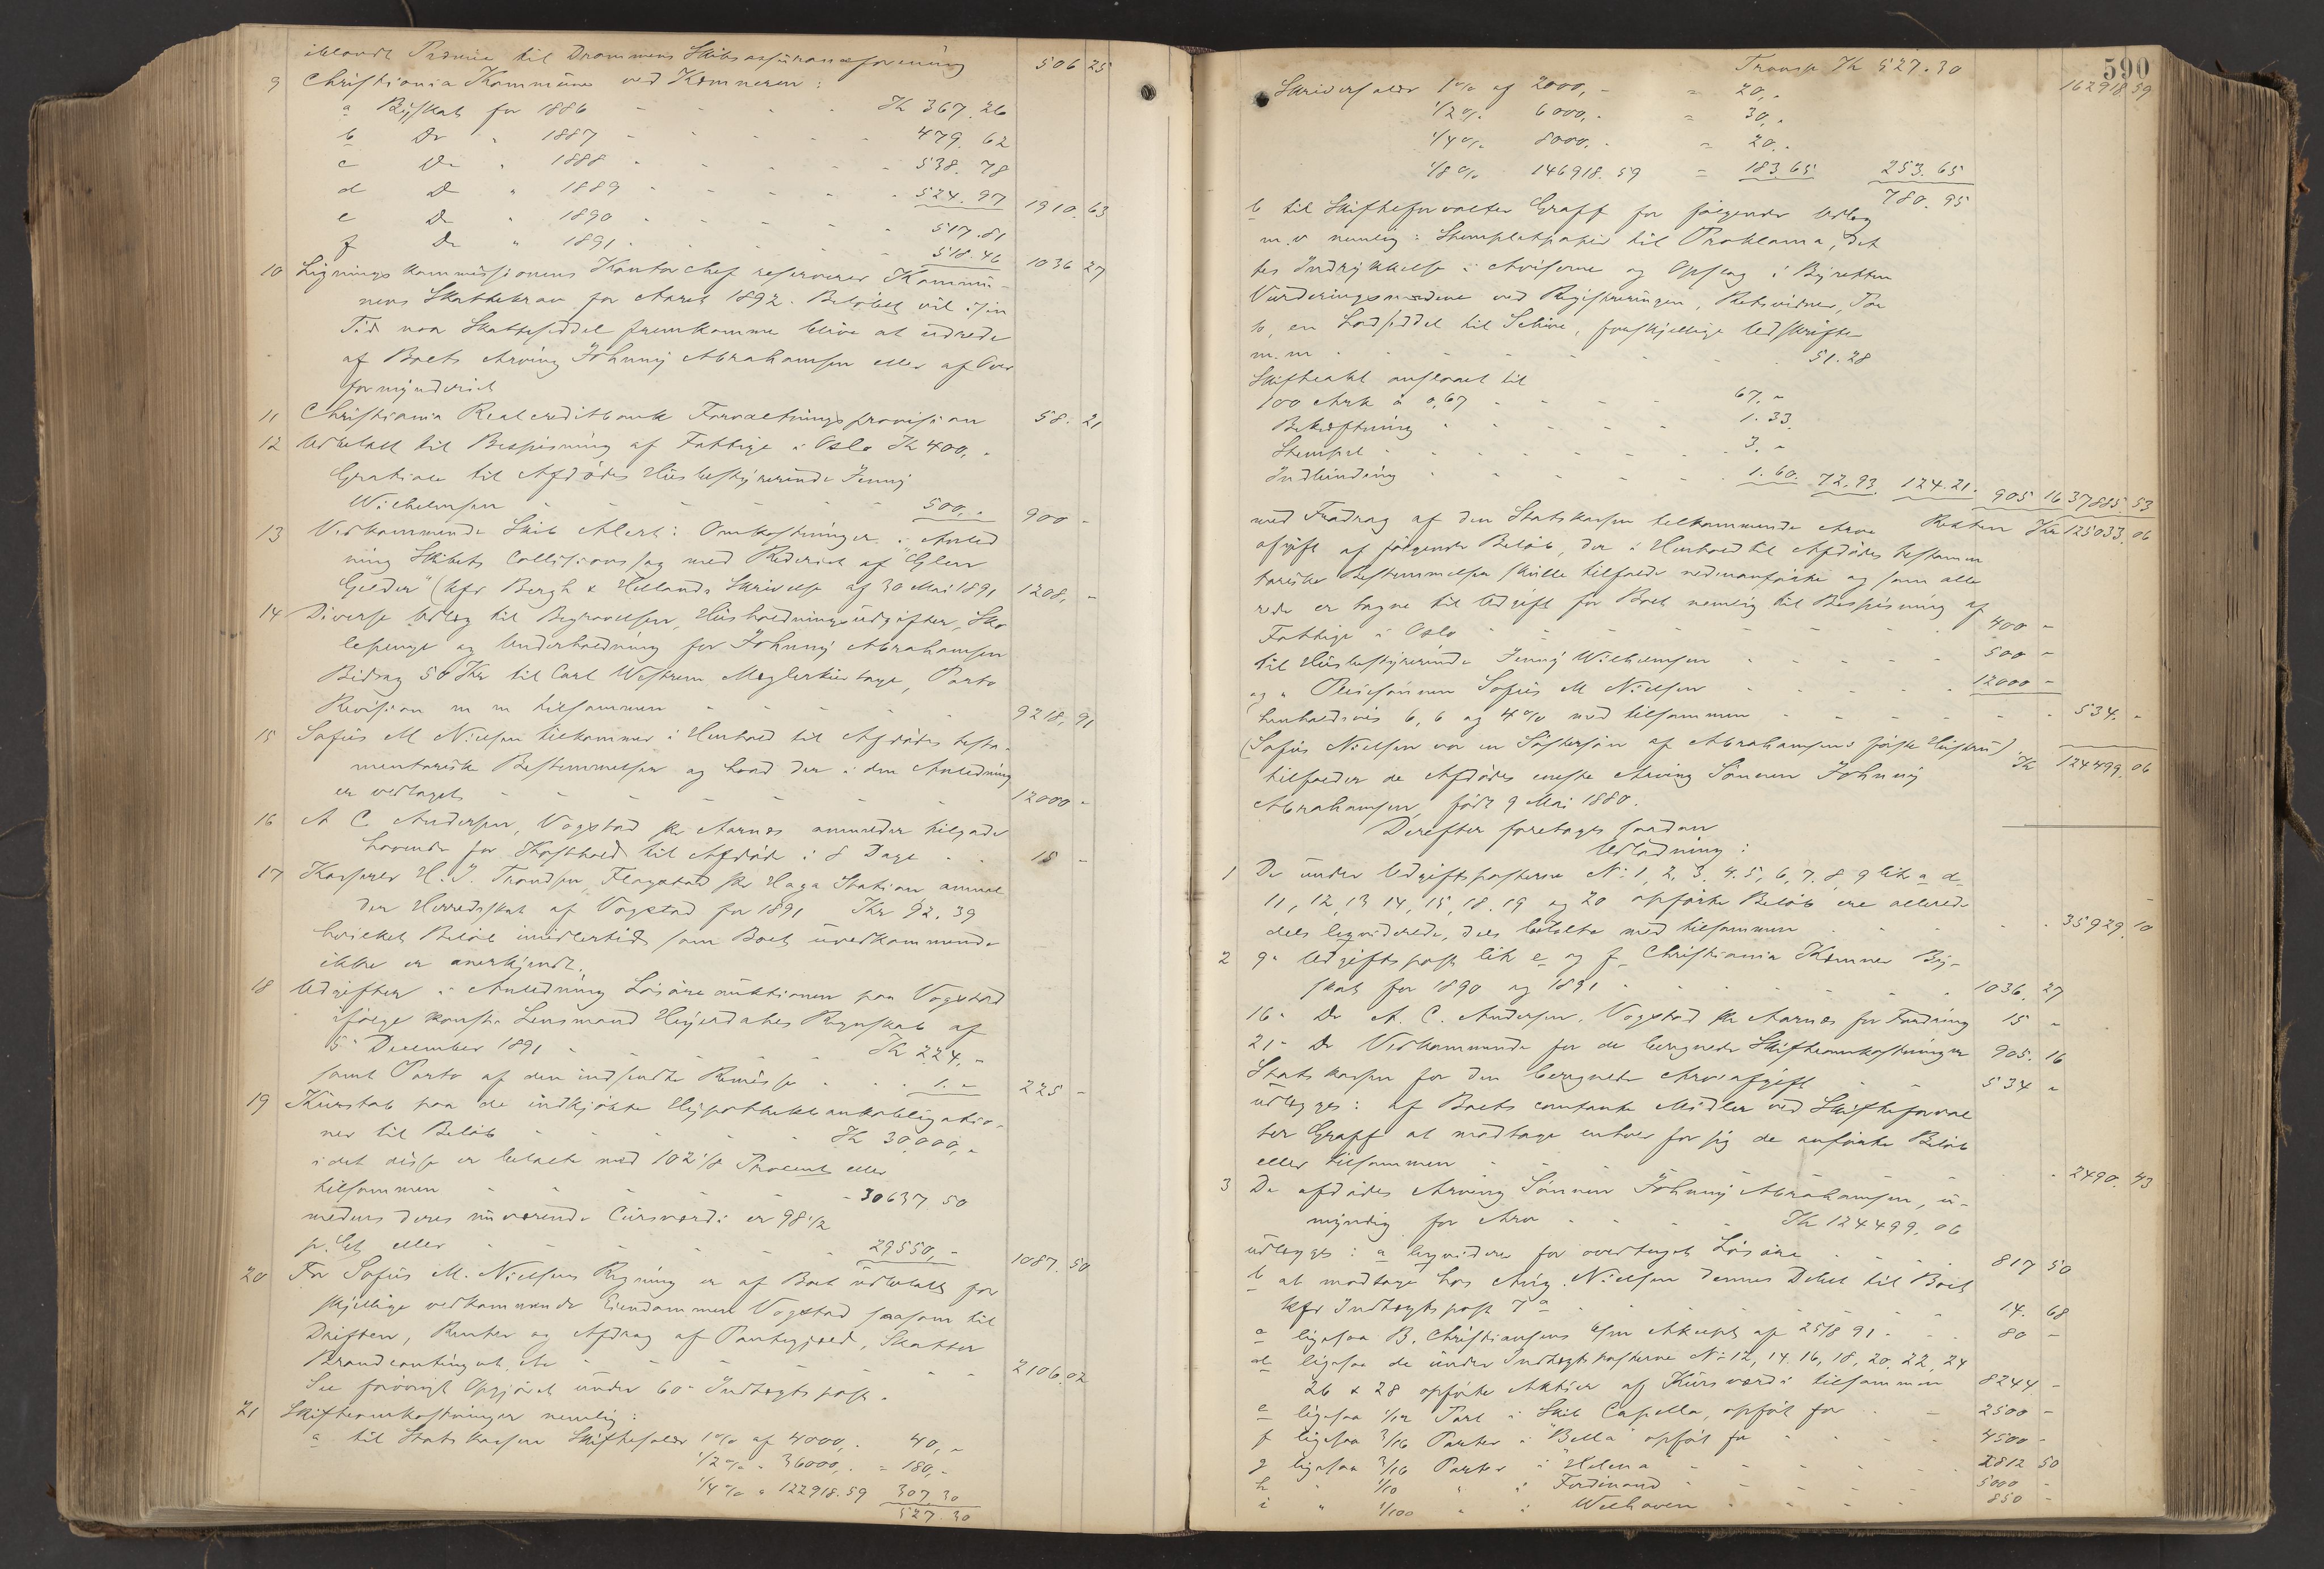 iblandt Præmie til Drammens Skibsassuranceforening 506 25
9 Christiania Kommune ved Kemneren:
a Byskat for 1886 - - - Kr 367.26
b Do " 1887 - - - 479.62
c Do " 1888 - - - 538.78
d Do " 1889 - - - 524.97 1910.63
e Do " 1890 - - - 517.81
f Do " 1891 - - - 518.46 1036 27
10 Ligningskommissionens Kontorchef reserverer Kommu-
nens Skattekrav for Aaret 1892. Beløbet vil i sin
Tid naar Skatteseddel fremkomme blive at udrede
af Boets Arving Johnny Abrahamsen eller af Over
formynderiet
11 Christiania Realcreditbank Forvaltningsprovision 58.21
12 Udbetalt til Bespisning af Fattige i Oslo Kr 400,-
Gratiale til Afdødes Husbestyrerinde Jenny
Wilhelmsen - - - 500,- 900 -
13 Vedkommende Skib Alert: Omkostninger i Anled
ning Skibets Collisionssag med Rederiet af "Glen
Gelder" (kfr Bergh & Hellands Skrivelse af 30 Mai 1891 1208,-
14 Diverse Udlæg til Begravelsen, Husholdningsudgifter, Sko
lepenge og Underholdning for Johnny Abrahamsen
Bidrag 50 Kr til Carl Westrem Meglerkurtage, Porto
Revision m m tilsammen - - - 9218,91
15 Sofus M Nielsen tilkommer i Henhold til Afdødes testa-
mentariske Bestemmelser og hvad der i den Anledning
er vedtaget - - - 12000 -
16 A C Andersen, Vogstad pr Aarnes anmelder tilgode
havende for Kosthold til Afdøde i 8 Dage - - 15 -
17 Kasserer H. J. Trondsen, Flagstad pr Haga Station anmel
der Herredsskat af Vogstad for 1891 Kr 92.39
hvilket Beløb imidlertid som Boet uvedkommende
ikke er anerkjendt.
18 Udgifter i Anledning Løsøreauktionen paa Vogstad
ifølge konst. Lensmand Heyerdahls Regnskab af
5 December 1891 - - - Kr 224,-
samt Porto af den indsendte Remisse - - - 1.- 225 -
19 Kurstab paa de indkjøbte Hypothekbankobligatio-
ner til Beløb - - - Kr 30,000,-
idet disse er betalte med 102 1/8 Procent eller
tilsammen - - - 30637.50
medens deres nuværende Cursværdi er 98 1/2
p. Ct. eller - - - 29550,- 1087.50
20 For Sofus M. Nielsens Regning er af Boet udbetalt for
skjellige vedkommende Eiendommen Vogstad saasom til
Driften, Renter og Afdrag af Pantegjæld, Skatter
Brandcontingent, etc - - - 2106.02
See forøvrigt Opgjøret under 60 Indtægtspost.
21 Skifteomkostninger nemlig:
a til Statskassen Skiftesalær 1% af 4000,. 40,-
1/2% " 36000,. = 180,-
1/4% " 122918.59 307.30
527.30
590
Transp Kr 527.30 162918.59
Skriversalær 1% af 2000,- = 20,-
1/2% 6000,- = 30,-
1/4% 8000,- = 20,-
1/8% 146918.59 = 183.65 253.65
780.95
b til Skifteforvalter Graff for følgende Udlæg
m.v nemlig: Stempletpapir til Proklama, det
tes Indrykkelse i Aviserne og Opslag i Byretten
Vurderingsmændene ved Registreringen, Retsvidner, Por
to, en Lodseddel til Schive, forskjellige Udskrifter
m.m - - - 51.28
Skifteakt anslaaet til
100 Ark à 0,67 - - - 67.-
Bekræftning - - - 1.33
Stempel - - - 3.-
Indbinding - - - 1.60. 72.93 124.21. 905 16 37885.53
Resten Kr 125033.06
med Fradrag af den Statskassen tilkommende Arve
afgift af følgende Beløb, der i Henhold til Afdødes testamen
tariske Bestemmelser skulle tilfalde nedenanførte og som alle
rede er tagne til Udgift for Boet nemlig til Bespisning af
Fattige i Oslo - - - 400 -
til Husbestyrerinde Jenny Wilhelmsen - - - 500 -
og " Pleiesønnen Sofus M Nielsen - - - 12000 -
henholdsvis 6, 6 og 4% med tilsammen - - - 534.-
(Sofus Nielsen var en Søstersøn af Abrahamsens første Hustru) Kr 124499.06
tilfalder de Afdødes eneste Arving Sønnen Johnny
Abrahamsen, født 9 Mai 1880.
Derefter foretages saadan
Udlodning:
1 De under Udgiftsposterne No 1, 2, 3, 4, 5, 6, 7, 8, 9 litr a-d
11, 12, 13 14, 15, 18, 19 og 20 opførte Beløb ere allerede
dels liqviderede, dels betalte med tilsammen - - - 35929.10
2 9- Udgiftspost litr e og f Christiania Kemner By-
skat for 1890 og 1891 - - - 1036.27
16- Do A. C. Andersen, Vogstad pr Aarnes for Fordring 15 -
21- Do Vedkommende for de beregnede Skifteomkostninger 905.16
Statskassen for den beregnede Arveafgift - - 534 -
udlægges: af Boets contante Midler ved Skifteforval
ter Graff at modtage enhver for sig de anførte Beløb
eller tilsammen - - - 2490.43
3 De afdødes Arving Sønnen Johnny Abrahamsen, u-
myndig for Arv - - - Kr 124499.06
udlægges: a liqviderer for overtaget Løsøre - - - 817 50
b at modtage hos Aug. Nielsen dennes Debet til Boet
kfr Indtægtspost 7 a - - - 14.68
c ligesaa B. Christiansens Akcept af 25/8 91 - - - 80 -
d ligesaa de under Indtægtsposterne No 12, 14, 16, 18, 20, 22, 24
26 & 28 opførte Aktier af Kursværdi tilsammen 8244 -
e ligesaa 1/12 Part i Skib Capella, opført for - - 2500 -
f ligesaa 3/16 Parter i "Bella" opført for - - - 4500 -
g ligesaa 3/16 Parter i "Helena" - - - 2812 50
h " 1/10 " " Ferdinand - - - 5000 -
i " 1/100 " " Welhaven - - - 850 -